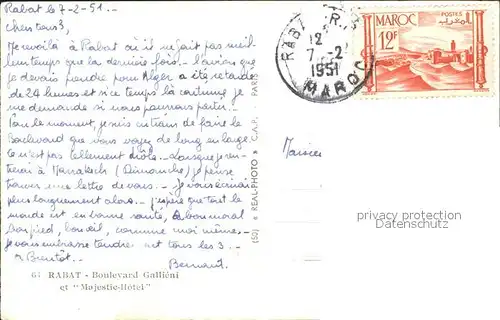 Rabat le 7-2-51.-
Chers tous 3,
Me voilà à Rabat où il ne fait pas meil-
leur temps que la dernière fois. L'avion que
je devais prendre pour Alger a été retardé
de 24 heures et si ce temps là continue je
me demande si nous pourrons partir.
Pour le moment, je suis en train de faire le
Boulevard que vous voyez de long en large
Ce n'est pas tellement drôle. Lorsque je ren-
trerai à Marrakech (Dimanche) je pense
trouver une lettre de vous. Je vous écrirai
plus longuement alors. J'espère que tout le
monde est en bonne santé, a bon moral
bon pied, bon oeil, comme moi même.
Je vous embrasse tendre- et tous les 3.-
à Bientôt.- Bernard.
61 RABAT - Boulevard Galliéni
et "Majestic-Hôtel"
(50) « REAL-PHOTO » C.A.P. PARIS
RABAT R.P.
12
7-2
1951
MAROC
POSTES
MAROC
المغرب
12F
privacy protection
Datenschutz